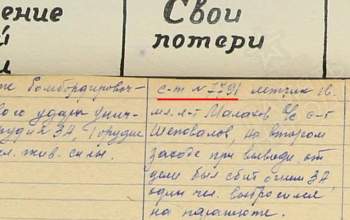 ение
Свои
потери
й
и
бомбардировоч-
ного удара унич-
орудия ЗА, 1 орудие
чел. жив. силы.
с-т № 2791 летчик гв.
мл. л-т Малахов в/с с-т
Шеповалов, на втором
заходе при выводе от
цели был сбит огнем ЗА
один чел. выбросился
на парашюте.